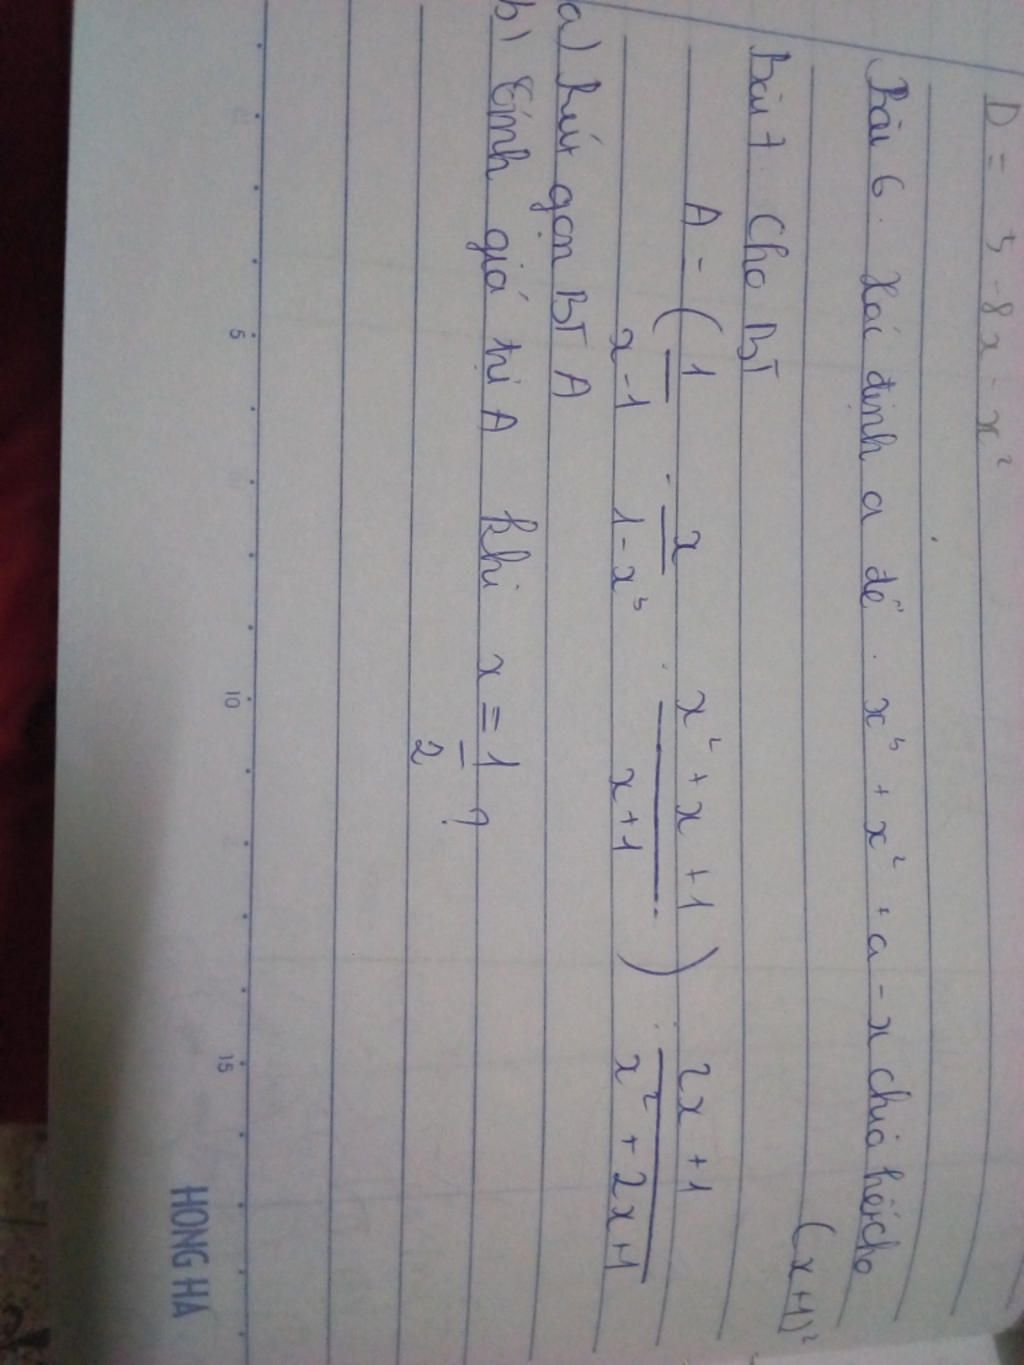 D = 5 - 8x - x²
Bài 6. Xác định a để. x³ + x² + a - x chia hết cho
(x+1)²
Bài 7. Cho BT
A = (1/(x-1) - x/(1-x³) . (x²+x+1)/(x+1)) : (2x+1)/(x²+2x+1)
a) Rút gọn BT A
b) Tính giá trị A khi x = 1/2 ?
5 10 15
HONG HA